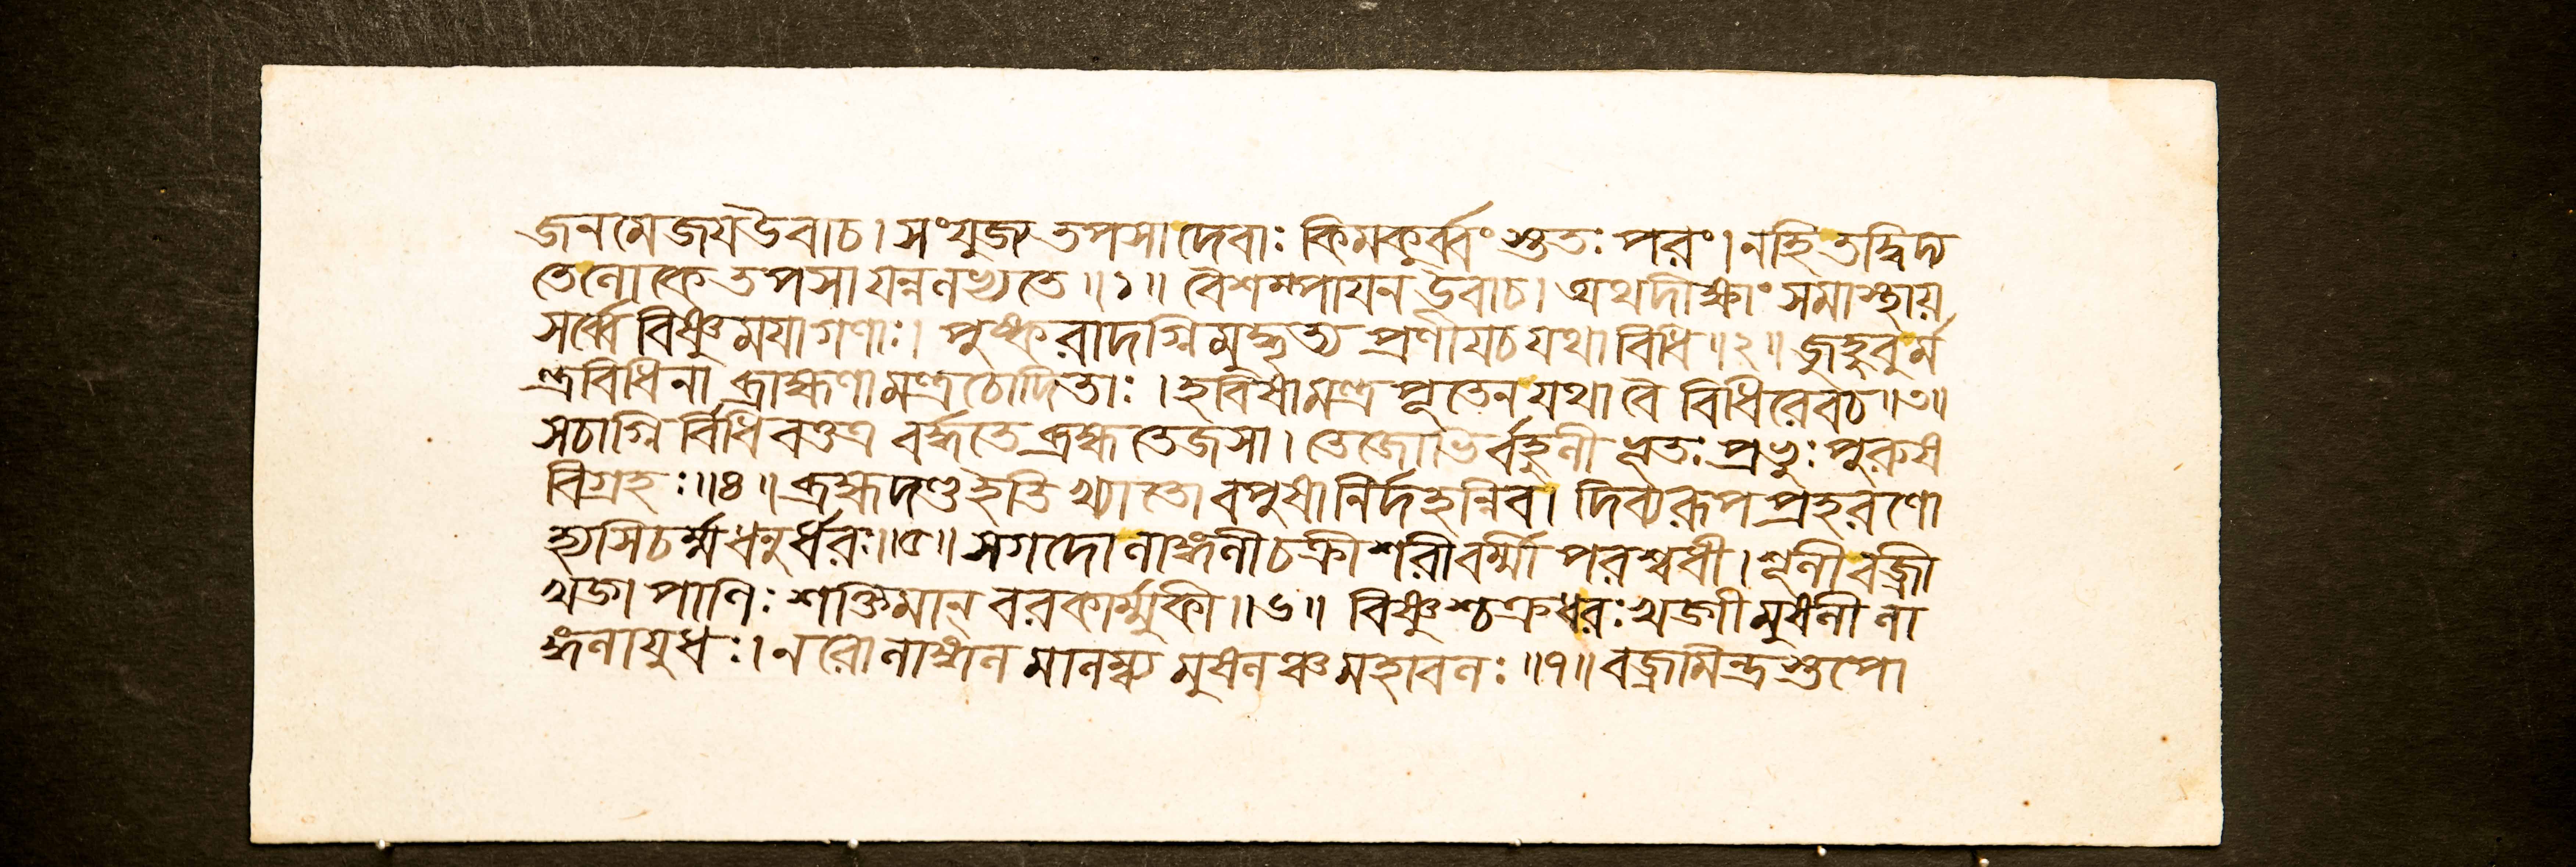 জনমেজয উবাচ। সংযুজ্য তপসা দেবাঃ কিমকুর্ব্বং শ্তুতঃ পরং। নহি তদ্বিদ্য
তে লোকে তপসা যন্ন লভ্যতে॥১॥ বৈশম্পাযন উবাচ। অথ দীক্ষাং সমাস্থায়
সর্ব্বে বিষ্ণুময়া গণাঃ। পুষ্করাদগ্নিমুদ্ধৃত্য প্রণীয চ যথাবিধি॥২॥ জুহুবুর্ম
ন্ত্রবিধিনা ব্রাহ্মণা মন্ত্রচোদিতাঃ। হবিষা মন্ত্রপূতেন যথা বৈ বিধিরেব চ॥৩॥
স চাগ্নির্বিধিবত্তত্র বর্দ্ধতে ব্রহ্মতেজসা। তেজোভির্বহুলীভূতঃ প্রভুঃ পুরুষ
বিগ্রহঃ॥৪॥ ব্রহ্মদণ্ড ইতি খ্যাতো বপুষা নির্দহন্নিব। দিব্যরূপপ্রহরণো
হ্যসিচর্ম্মধনুর্ধরঃ॥৫॥ সগদো লাঙ্গলী চক্রী শরী বর্ম্মী পরশ্বধী। শূলী বজ্রী
খড্গপাণিঃ শক্তিমান্ বরকার্ম্মুকী॥৬॥ বিষ্ণুশ্চক্রধরঃ খড্গী মুষলী লা
ঙ্গলায়ুধঃ। নরো লাঙ্গলমালম্ব্য মুষলঞ্চ মহাবলঃ॥৭॥ বজ্রমিন্দ্রস্তপো